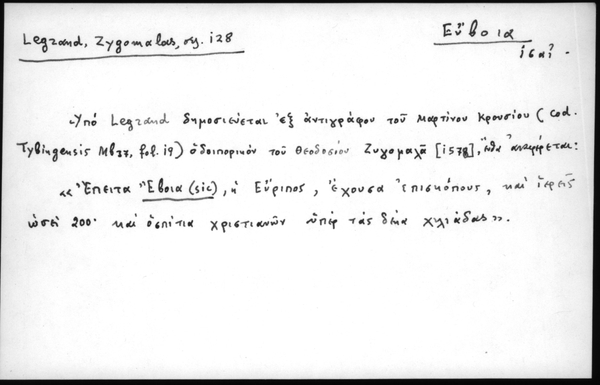 Legrand, Zygomalas, σελ. 128
Εὔβοια
ισαʹ
Ὑπό Legrand δημοσιεύεται ἐξ ἀντιγράφου τοῦ Μαρτίνου Κρουσίου (cod.
Tybingensis Mb37, fol. 19) ὁδοιπορικόν τοῦ Θεοδοσίου Ζυγομαλᾶ [1578], ἔνθα ἀναφέρεται:
«Ἔπειτα Ἔβοια (sic), ἡ Εὔριπος, ἔχουσα ἐπισκόπους, καί ἱερεῖς
ὡσεί 200· καί ὁσπίτια χριστιανῶν ὑπέρ τάς δέκα χιλιάδας».